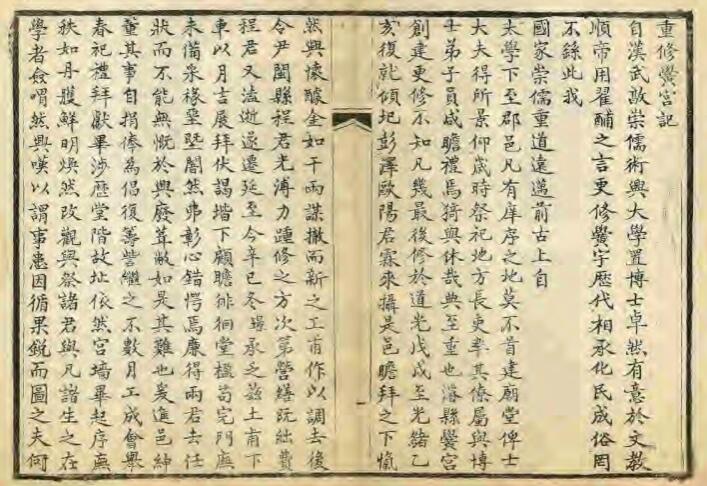 重修黌宮記
自漢武敞崇儒術興大學置博士卓然有意於文教
順帝用翟酺之言更修黌宇歷代相承化民成俗罔
不繇此我
國家崇儒重道遠邁前古上自
太學下至郡邑凡有庠序之地莫不首建廟堂俾士
大夫得所景仰歲時祭祀地方長吏率其僚屬與博
士弟子員咸瞻禮焉猗與休哉典至重也濬縣黌宮
創建更修不知凡幾最後修於道光戊戌至光緒乙
亥復就傾圯彭澤歐陽君霖來攝是邑瞻拜之下愾
然興懷醵金如干兩謀撤而新之工甫作以調去後
令尹閩縣程君光溥力踵修之方次第營繕阮絀費
程君又溘逝遂遷延至今辛巳冬 承之茲土甫下
車以月吉展拜伏謁堦下顧瞻徘徊堂楹茍完門廡
未備采椽堊塈闇然弗彰心錯愕焉廉得兩君去任
狀而不能無慨於興廢葺敝如是其難也爰進邑紳
董其事自捐俸為倡復籌貲繼之不數月工成會舉
春祀禮拜獻畢涉歷堂階故址依然宮墻畢起序廡
秩如丹雘鮮明煥然改觀與祭諸君與凡諸生之在
學者僉喟然興嘆以謂事患因循果銳而圖之夫何